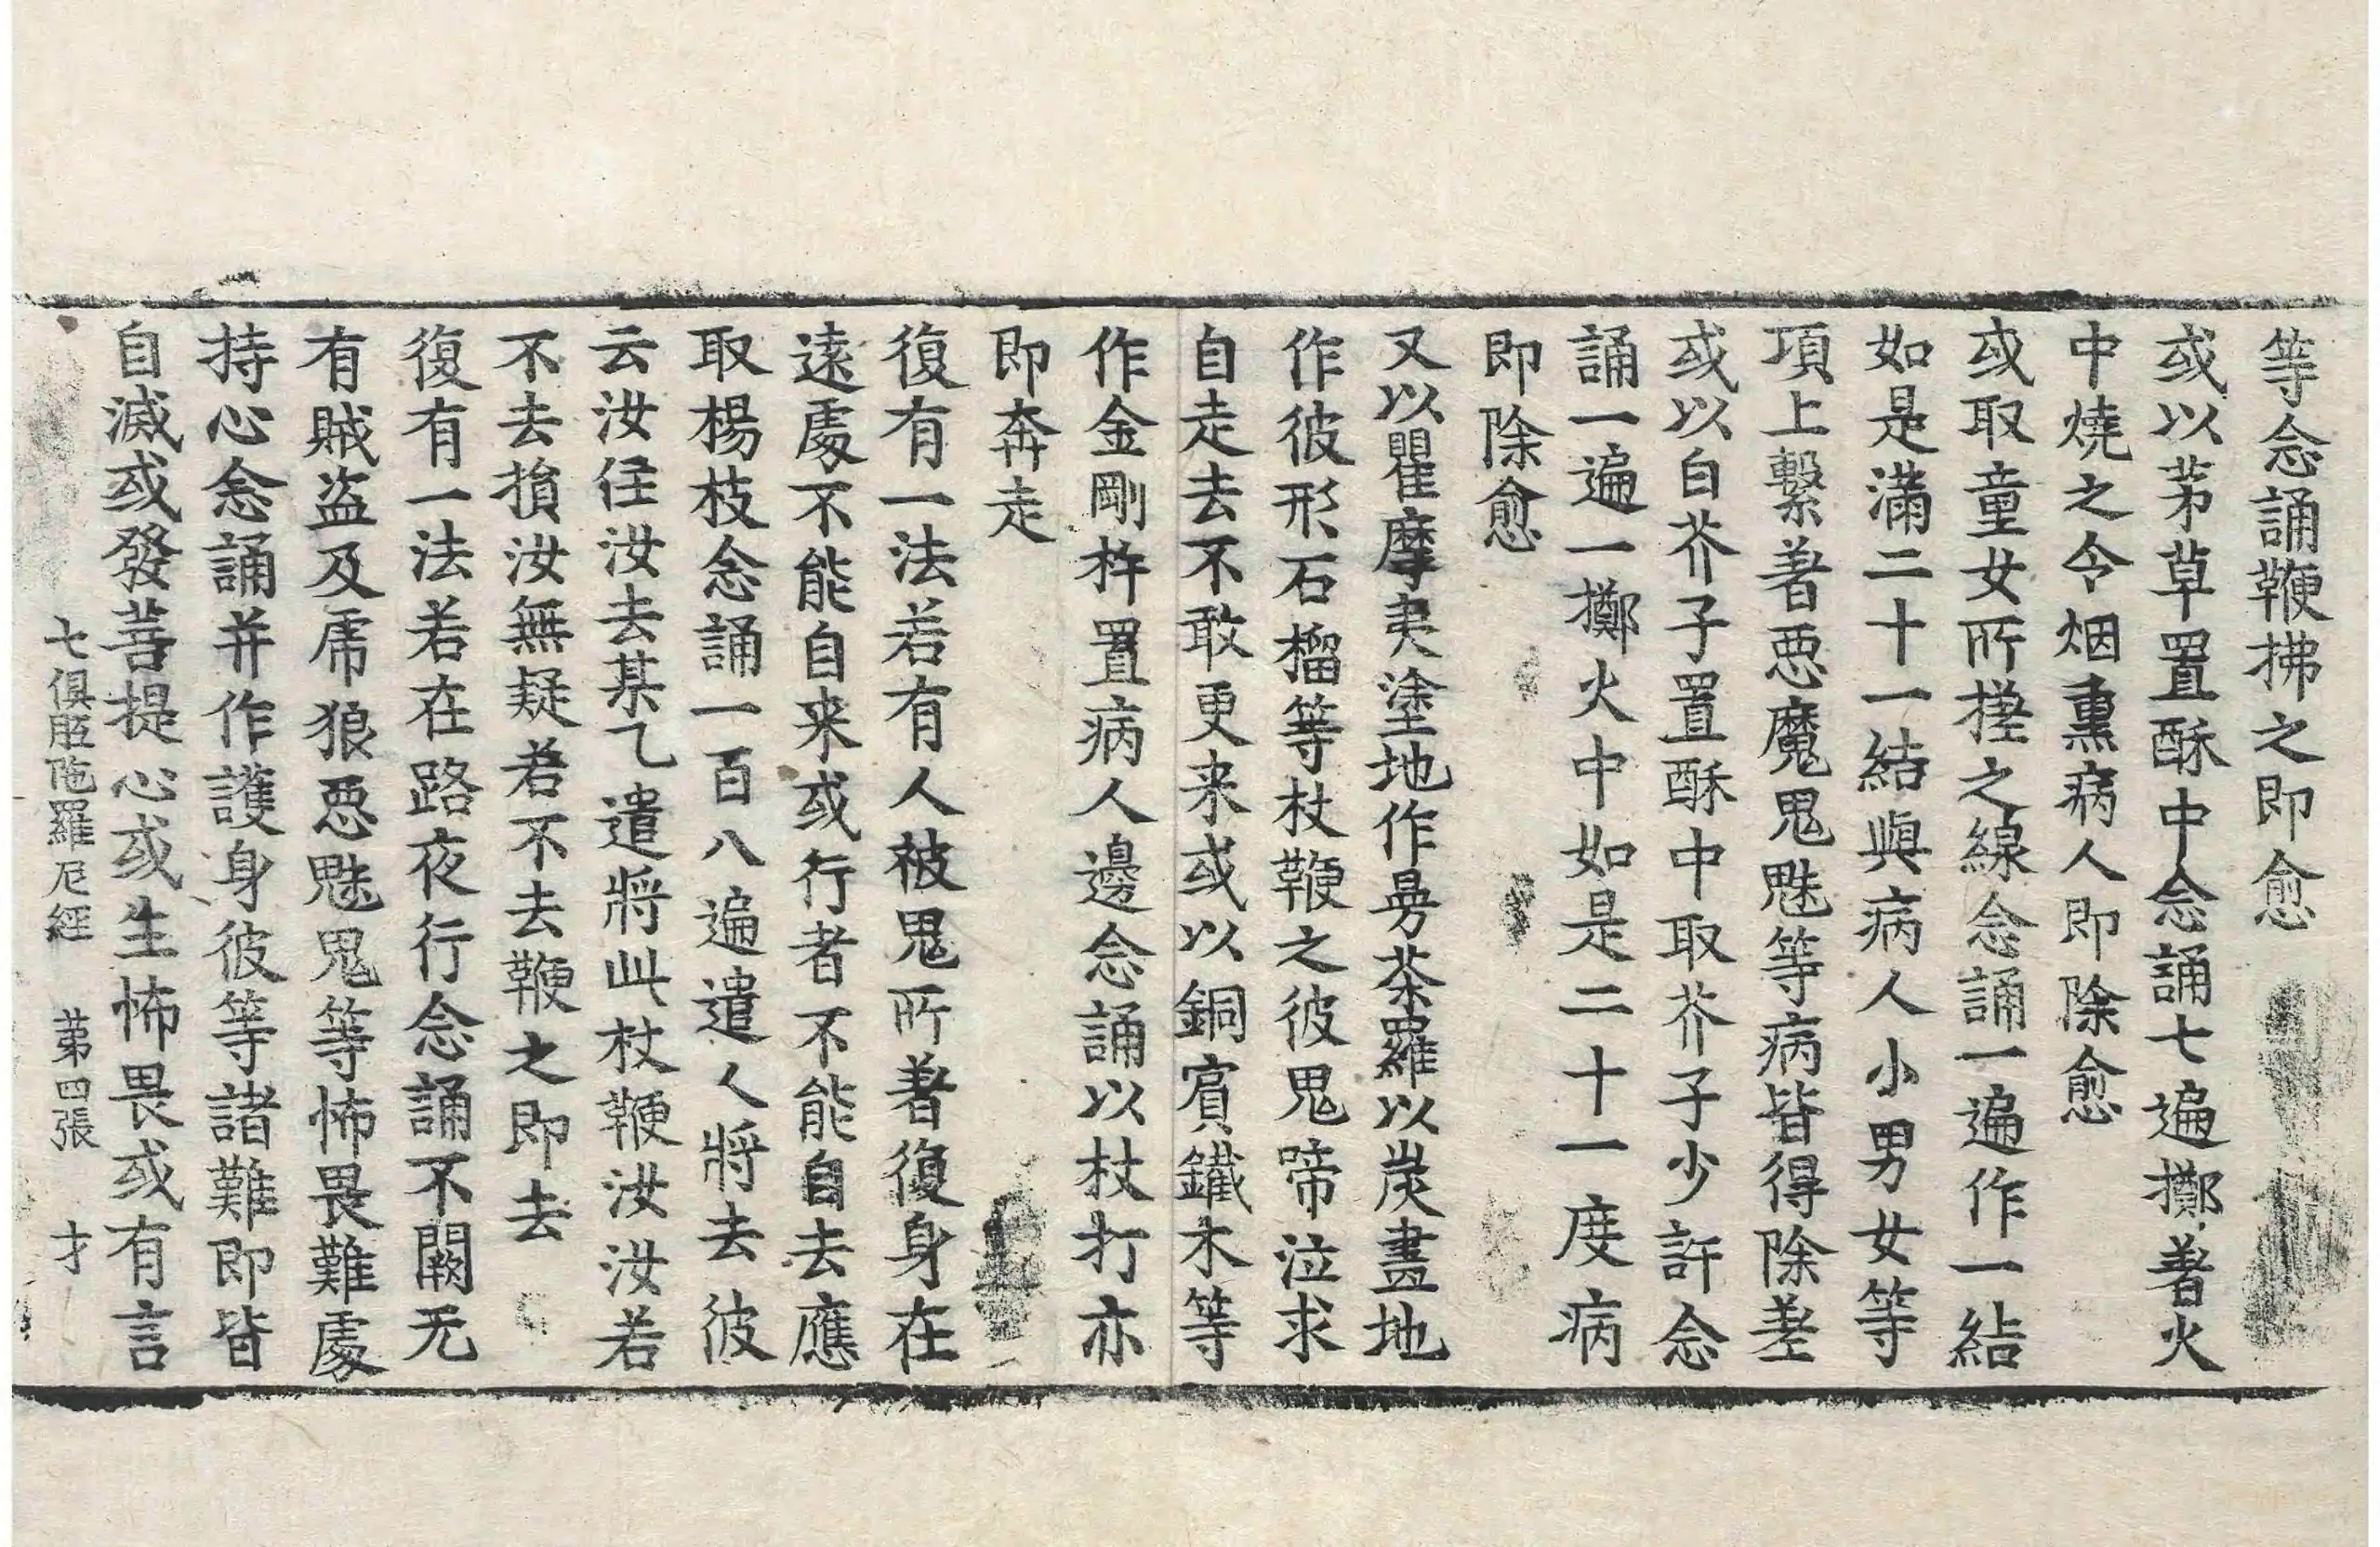 等念誦鞭拂之即愈
或以茅草置酥中念誦七遍擲著火
中燒之令烟熏病人即除愈
或取童女所搓之線念誦一遍作一結
如是滿二十一結與病人小男女等
項上繫著惡魔鬼魅等病皆得除差
或以白芥子置酥中取芥子少許念
誦一遍一擲火中如是二十一度病
即除愈
又以瞿摩夷塗地作曼荼羅以炭畫地
作彼形石榴等杖鞭之彼鬼啼泣求
自走去不敢更来或以銅賔鐵木等
作金剛杵置病人邊念誦以杖打亦
即奔走
復有一法若有人被鬼所著復身在
遠處不能自来或行者不能自去應
取楊枝念誦一百八遍遣人將去彼
云汝徃汝去某乙遣將此杖鞭汝汝若
不去損汝無疑若不去鞭之即去
復有一法若在路夜行念誦不闕无
有賊盗及虎狼惡魅鬼等怖畏難處
持心念誦并作護身彼等諸難即皆
自滅或發菩提心或生怖畏或有言
七俱胝陁羅尼經　第四張　才